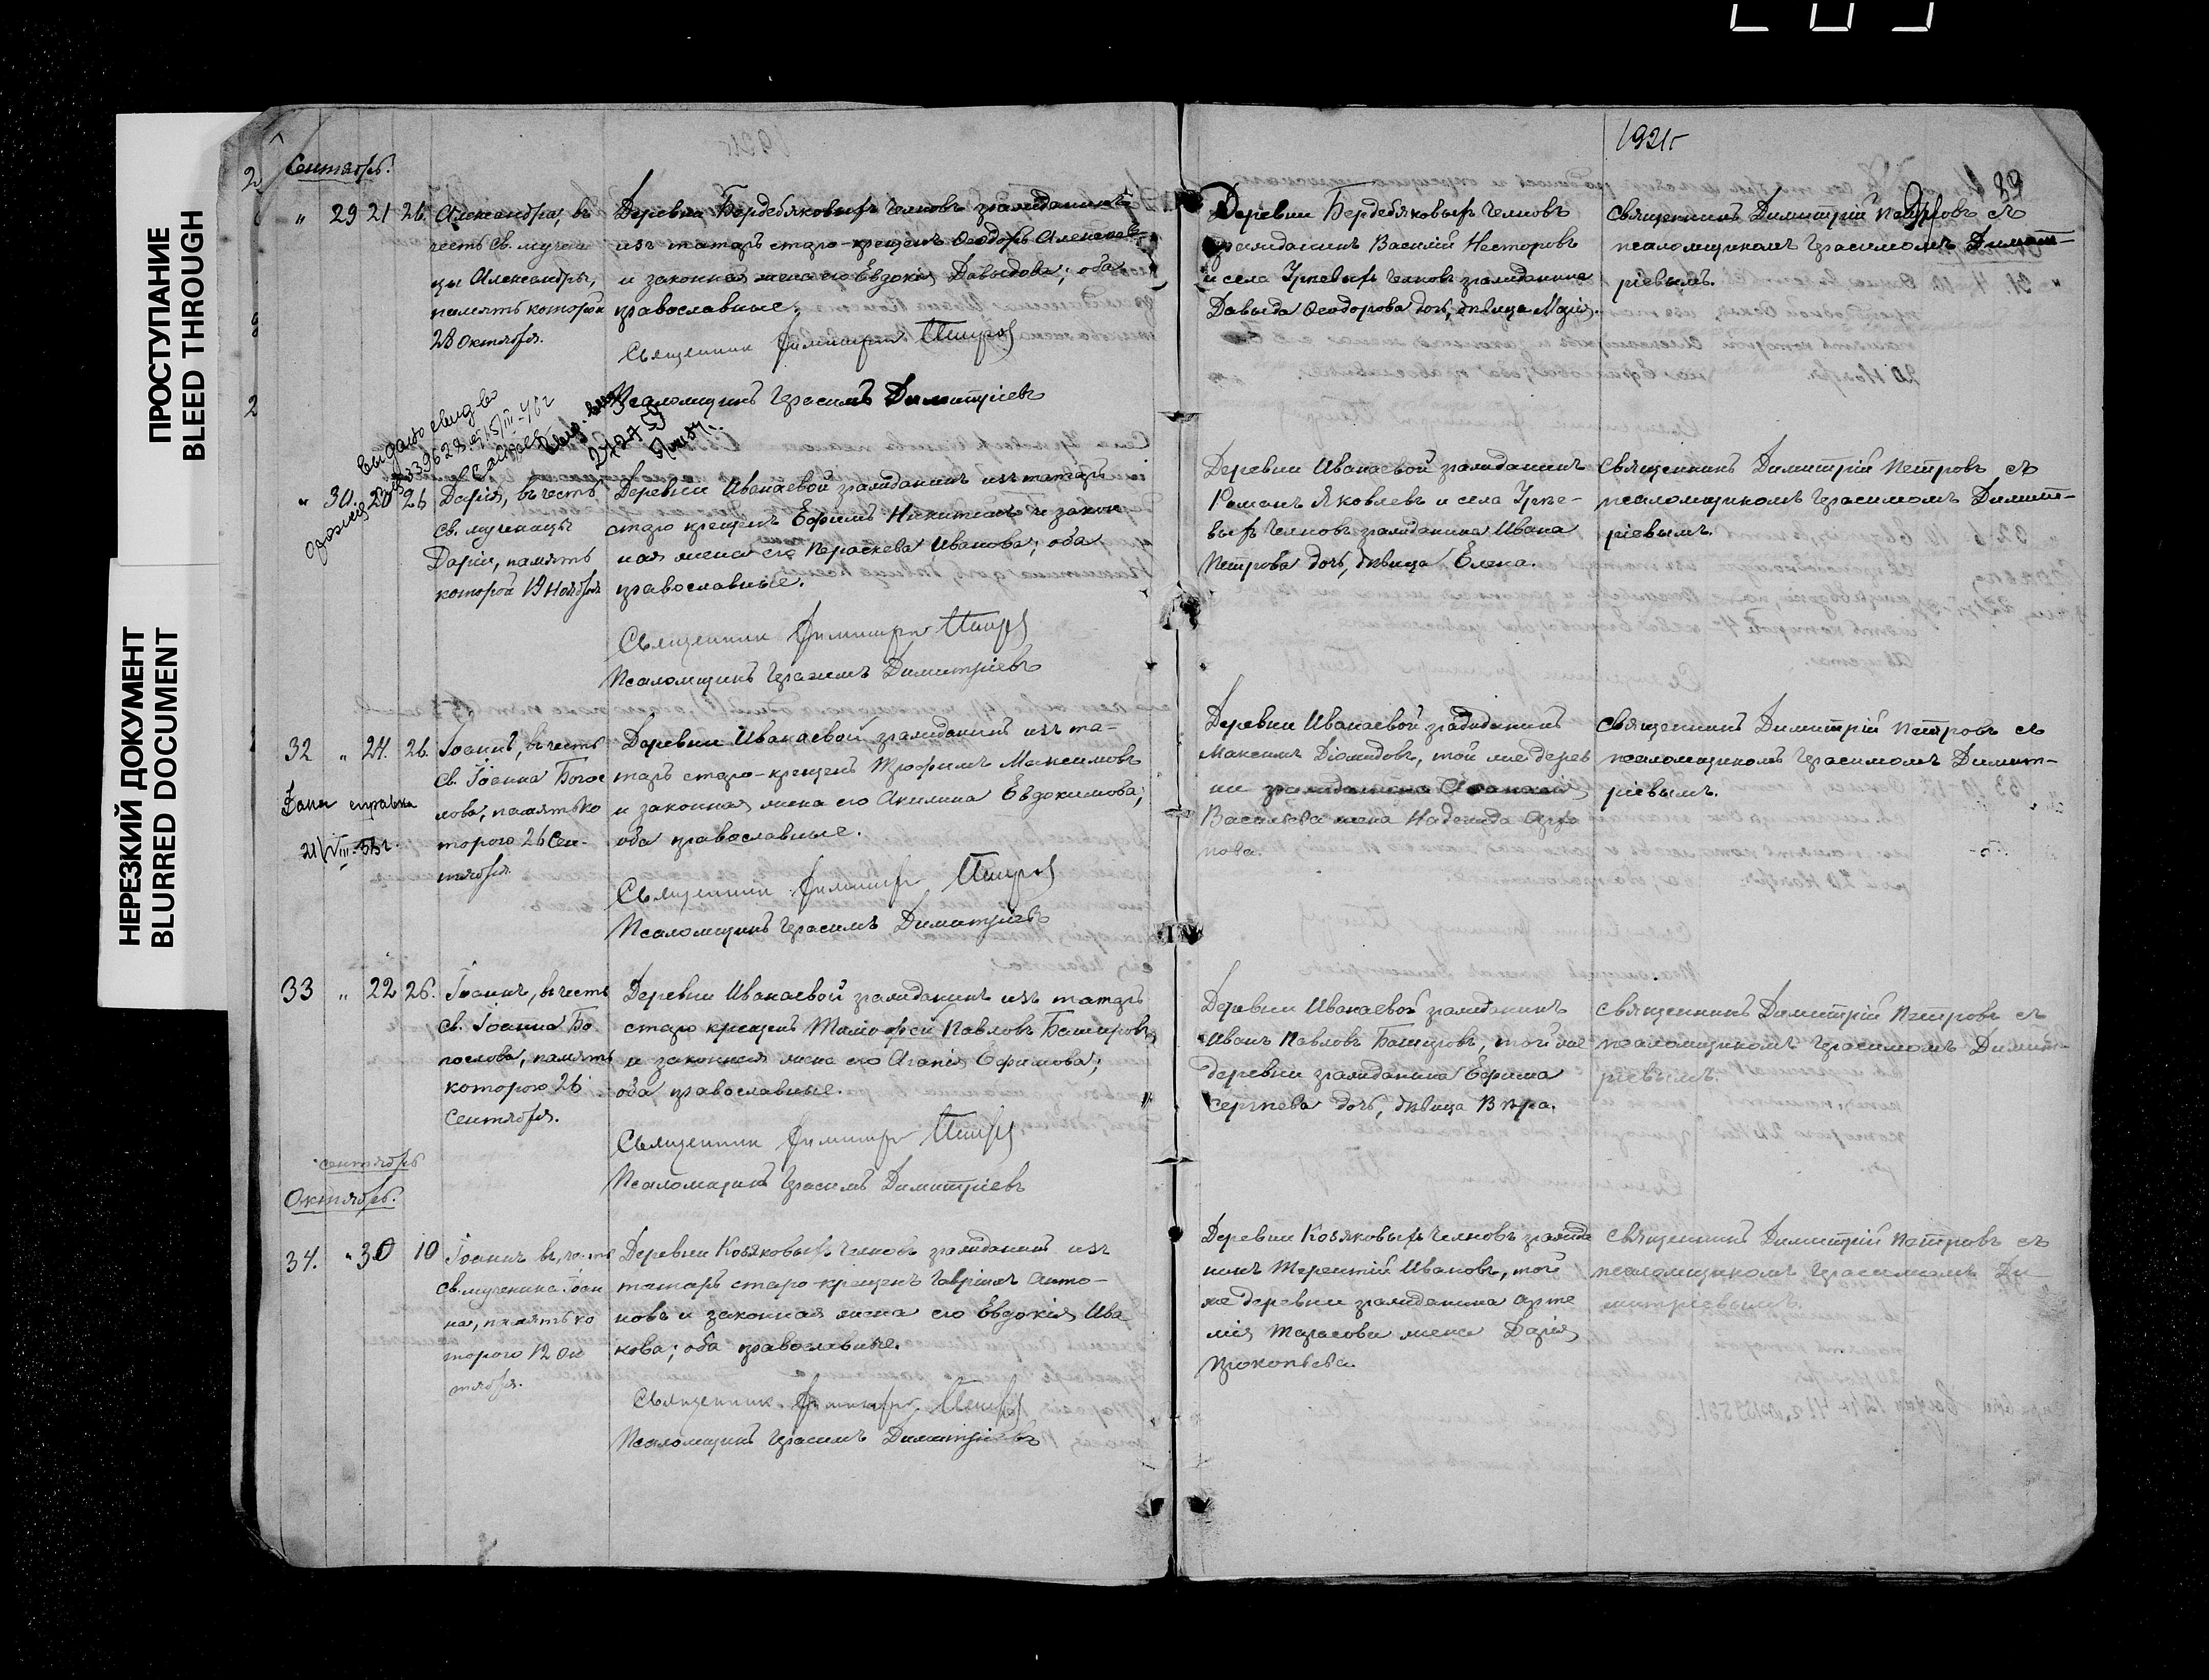 ПРОСТУПАНИЕ
BLEED THROUGH
НЕРЕЗКИЙ ДОКУМЕНТ
BLURRED DOCUMENT
1921г
39
Сентябрь.
" 29 21 26.
Александра, въ
честь Св. мучени
цы Александры,
память которой
28 Октября.
Деревни Бердебяковыхъ Челновъ гражданинъ
изъ татаръ старо-крещенъ Ѳеодоръ Алексѣевъ
и законная жена его Евдокія Давыдова; оба
православные.
Священникъ Димитрій Петровъ
Псаломщикъ Герасимъ Димитріевъ
Деревни Бердебяковыхъ Челновъ
гражданинъ Василій Несторовъ
и села Челновъ гражданина
Давыда Ѳеодорова дочь, дѣвица Марія.
Священникъ Димитрій Петровъ съ
псаломщикомъ Герасимомъ Димит-
ріевымъ.
" 30. 20 26
Дарія, въ честь
Св. мученицы
Даріи, память
которой 19 Ноября
Деревни Иванаевой гражданинъ изъ татаръ
старо крещенъ Ефимъ Никитинъ и закон
ная жена его Параскева Иванова; оба
православные.
Священникъ Димитрій Петровъ
Псаломщикъ Герасимъ Димитріевъ
Деревни Иванаевой гражданинъ
Романъ Яковлевъ и села
Челновъ гражданина Ивана
Петрова дочь, дѣвица Елена.
Священникъ Димитрій Петровъ съ
псаломщикомъ Герасимомъ Димит-
ріевымъ.
32 " 24. 26.
справка
Іоаннъ, въ честь
Св. Іоанна Богос
лова, память ко
тораго 26 Сен-
тября.
Деревни Иванаевой гражданинъ изъ та-
таръ старо-крещенъ Трофимъ Максимовъ
и законная жена его Акилина Евдокимова;
оба православные.
Священникъ Димитрій Петровъ
Псаломщикъ Герасимъ Димитріевъ
Деревни Иванаевой гражданинъ
Максимъ Діомидовъ, той же дерев
ни гражданина
Васильева жена Надежда
Священникъ Димитрій Петровъ съ
псаломщикомъ Герасимомъ Димит-
ріевымъ.
33 " 22 26.
Іоаннъ, въ честь
Св. Іоанна Бо
гослова, память
котораго 26
Сентября.
Деревни Иванаевой гражданинъ изъ татаръ
старо крещенъ Тимофей Павловъ Башировъ
и законная жена его Агапія Ефимова;
оба православные.
Священникъ Димитрій Петровъ
Псаломщикъ Герасимъ Димитріевъ
Деревни Иванаевой гражданинъ
Иванъ Павловъ Башировъ, той же
деревни гражданина Ефима
Сергѣева дочь, дѣвица Вѣра.
Священникъ Димитрій Петровъ съ
псаломщикомъ Герасимомъ Димит-
ріевымъ.
сентябрь
Октябрь.
34. " 30 10
Іоаннъ въ честь
Св. мученика Іоан
на, память ко
тораго 12 Ок
тября.
Деревни Козяковыхъ Челновъ гражданинъ изъ
татаръ старо-крещенъ Гавріилъ Анто-
новъ и законная жена его Евдокія Ива
нова; оба православные.
Священникъ Димитрій Петровъ
Псаломщикъ Герасимъ Димитріевъ
Деревни Козяковыхъ Челновъ гражда
нинъ Терентій Ивановъ, той
же деревни гражданина Арте
мія Тарасова жена Дарія
Прокопьева.
Священникъ Димитрій Петровъ съ
псаломщикомъ Герасимомъ Ди
митріевымъ.